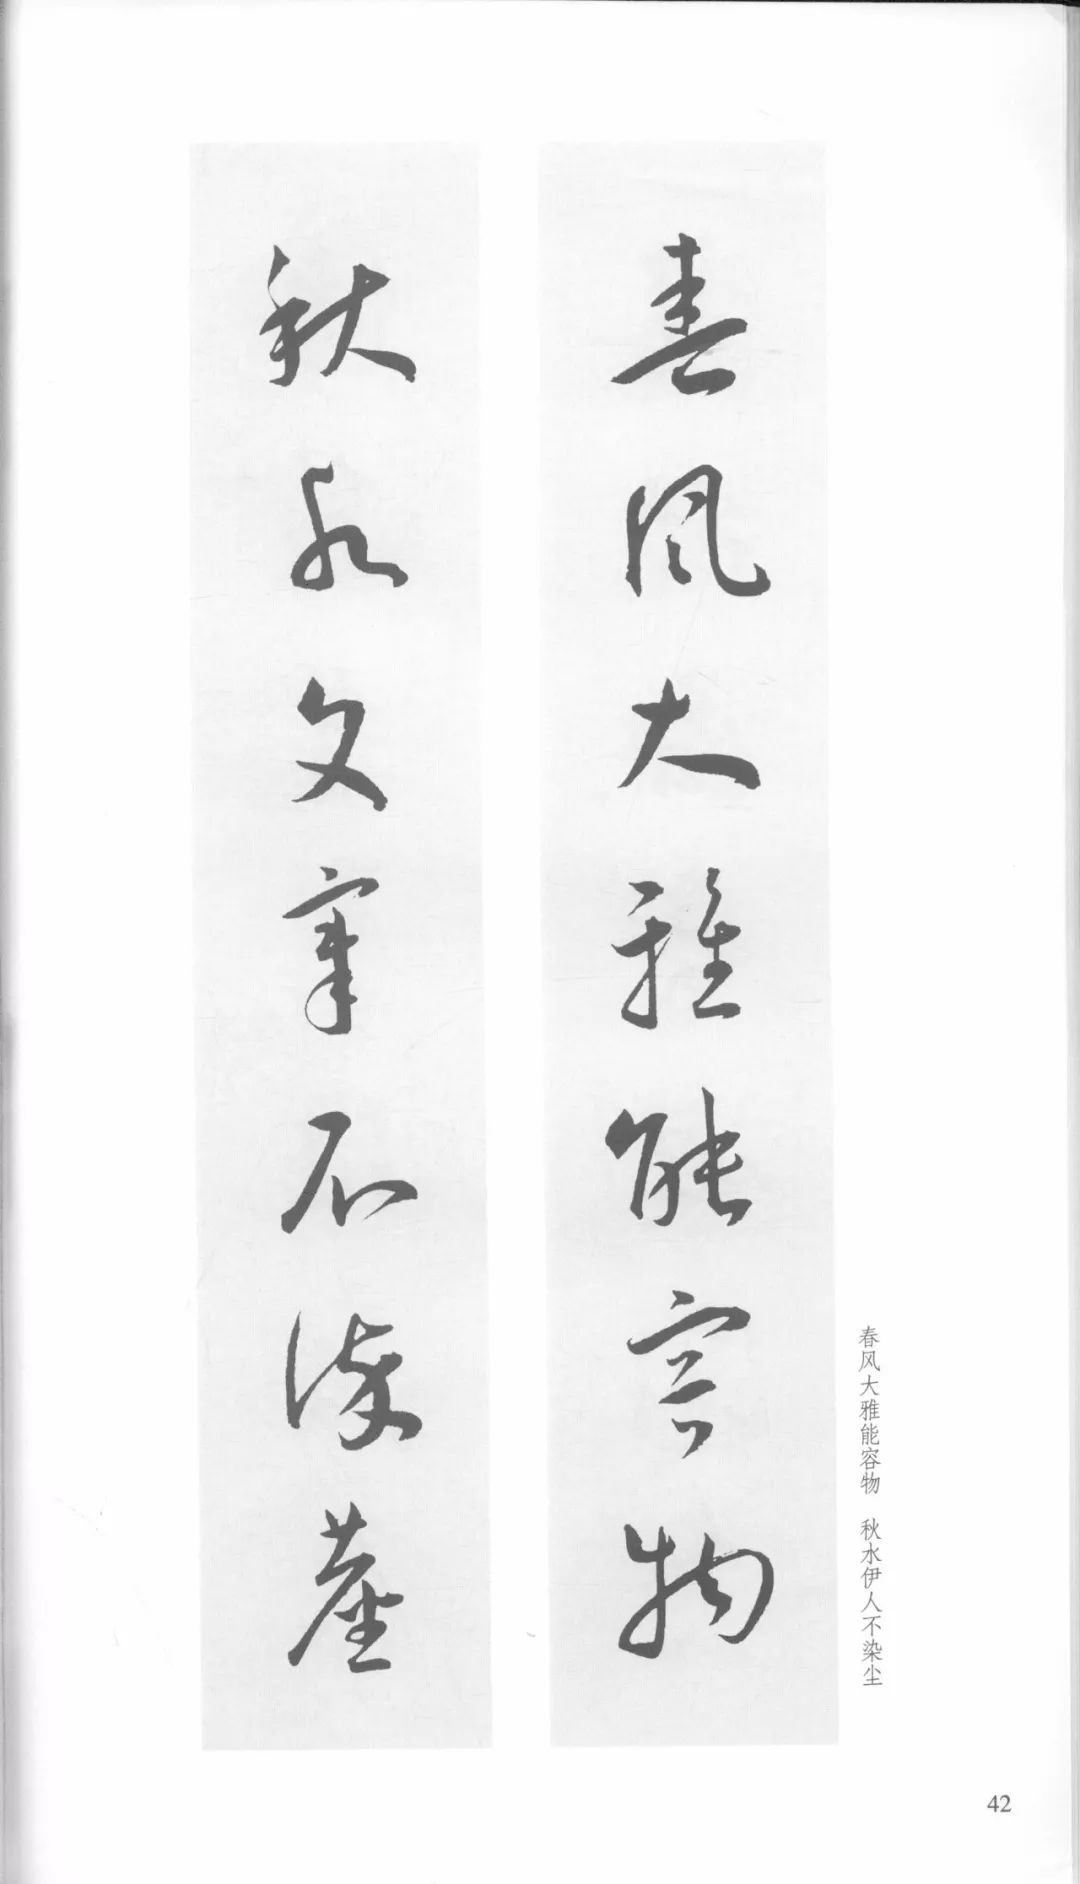 春風大雅能容物
秋水文章不染塵
春风大雅能容物 秋水伊人不染尘
42